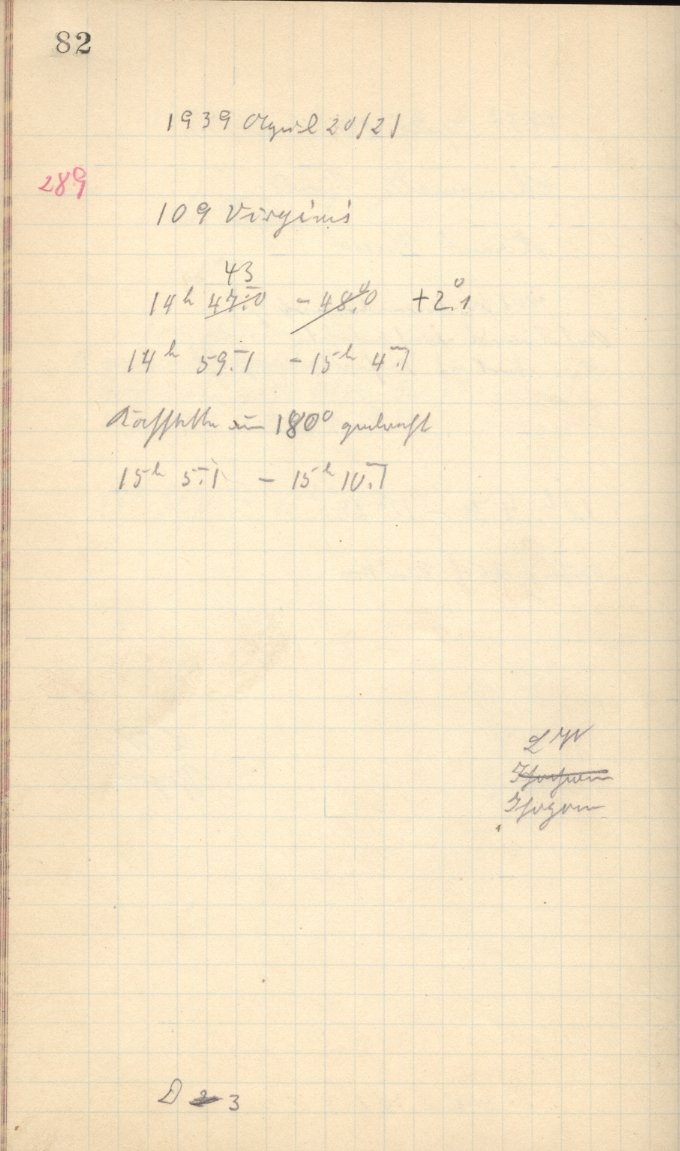 82
1939 April 20/21
289
109 Virginis
43
14h 47m.0 – 48m.0 +2°.1
14h 59m.1 – 15h 4m.1
Kassette um 180° gedreht
15h 5m.1 – 15h 10m.1
LW
D 2 3